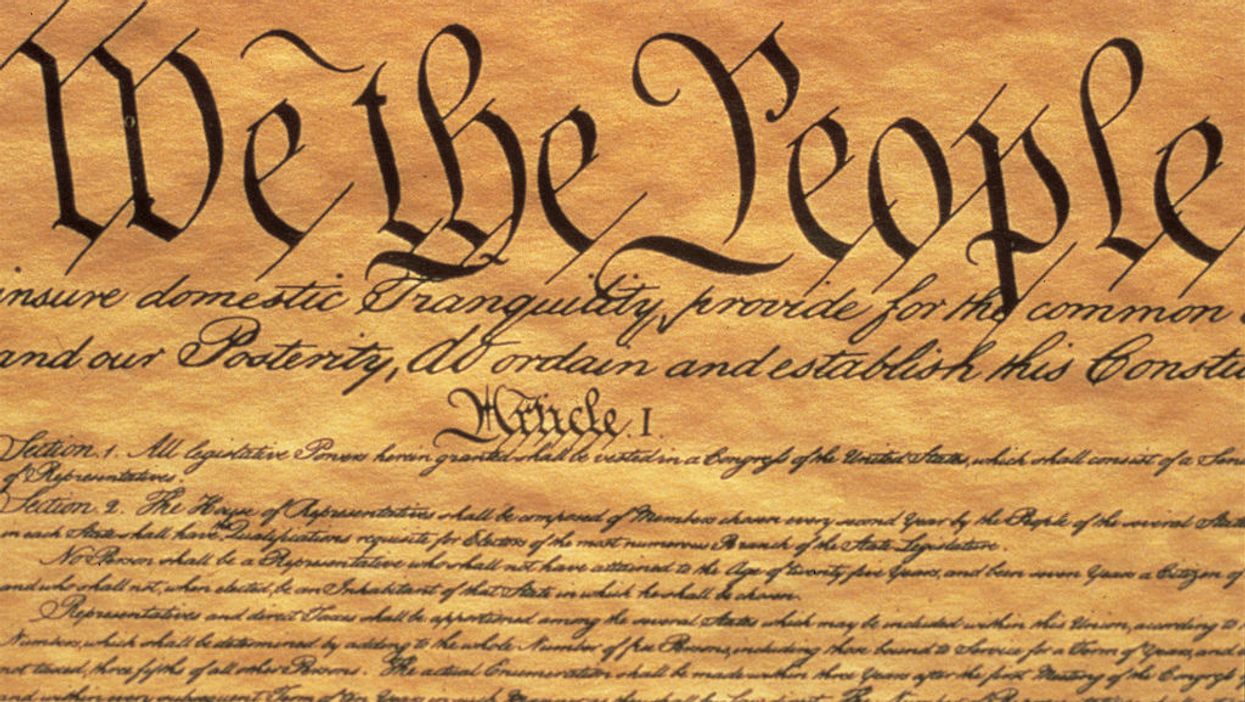 We the People
insure domestic Tranquility, provide for the common
and our Posterity, do ordain and establish this Constitu
Article. I.
Section. 1. All legislative Powers herein granted shall be vested in a Congress of the United States, which shall consist of a Sena
of Representatives.
Section. 2. The House of Representatives shall be composed of Members chosen every second Year by the People of the several Stat
in each State shall have the Qualifications requisite for Electors of the most numerous Branch of the State Legislature.
No Person shall be a Representative who shall not have attained to the Age of twenty five Years, and been seven Years a Citizen of
and who shall not, when elected, be an Inhabitant of that State in which he shall be chosen.
Representatives and direct Taxes shall be apportioned among the several States which may be included within this Union, according to
Numbers, which shall be determined by adding to the whole Number of free Persons, including those bound to Service for a Term of Years, and
not taxed, three fifths of all other Persons. The actual Enumeration shall be made within three Years after the first Meeting of the Congress
and within every subsequent Term of ten Years, in such Manner as they shall by Law direct. The Number of